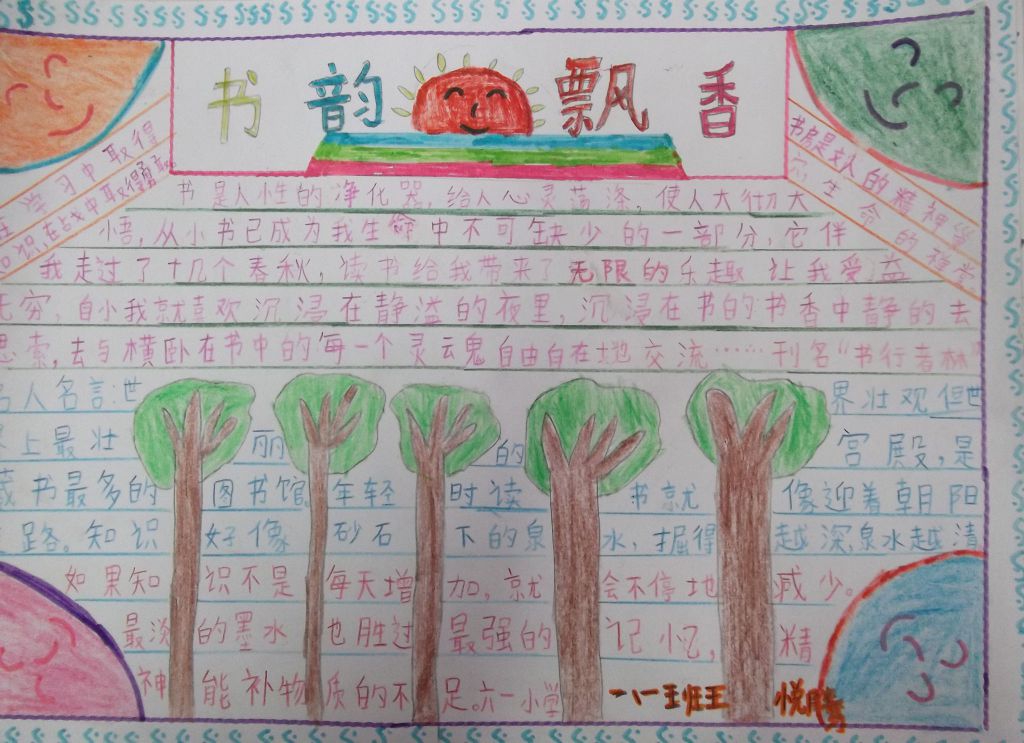 书韵飘香
在学习中取得
知识,在战中取得勇敢
书房是文人的精神
它生命的
书是人性的净化器,给人心灵荡涤,使人大彻大
悟,从小书已成为我生命中不可缺少的一部分,它伴
我走过了十几个春秋,读书给我带来了无限的乐趣 让我受益
无穷,自小我就喜欢沉浸在静溢的夜里,沉浸在书的书香中静的去
思索,去与横卧在书中的每一个灵云鬼自由自在地交流……刊名“书行香林”
名人名言:世界壮观但世
界上最壮丽的宫殿,是
藏书最多的图书馆。年轻时读书就像迎着朝阳
路。知识好像砂石下的泉水,掘得越深泉水越清
如果知识不是每天增加,就会不停地减少。
最淡的墨水也胜过最强的记忆,精
神能补物质的不足。六一小学 悦腾